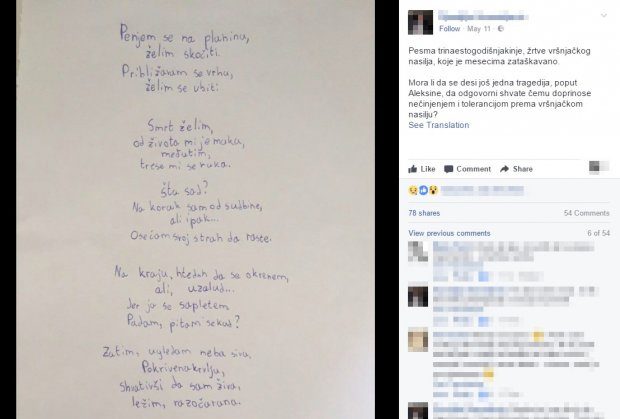 Penjem se na planinu,
želim skočiti.
Približavam se vrhu,
želim se ubiti.
Smrt želim,
od života mi je muka,
međutim,
trese mi se ruka.
Šta sad?
Na korak sam od sudbine,
ali ipak...
Osećam svoj strah da raste.
Na kraju, htedoh da se okrenem,
ali, uzalud...
Jer ja se sapletem
Padam, pitam se kad?
Zatim, ugledam neba siva.
Pokrivena krvlju,
Shvativši da sam živa,
ležim, razočarana.
Follow · May 11 ·
Pesma trinaestogodišnjakinje, žrtve vršnjačkog
nasilja, koje je mesecima zataškavano.
Mora li da se desi još jedna tragedija, poput
Aleksine, da odgovorni shvate čemu doprinose
nečinjenjem i tolerancijom prema vršnjačkom
nasilju?
See Translation
Like Comment Share
78 shares 54 Comments
View previous comments 6 of 54